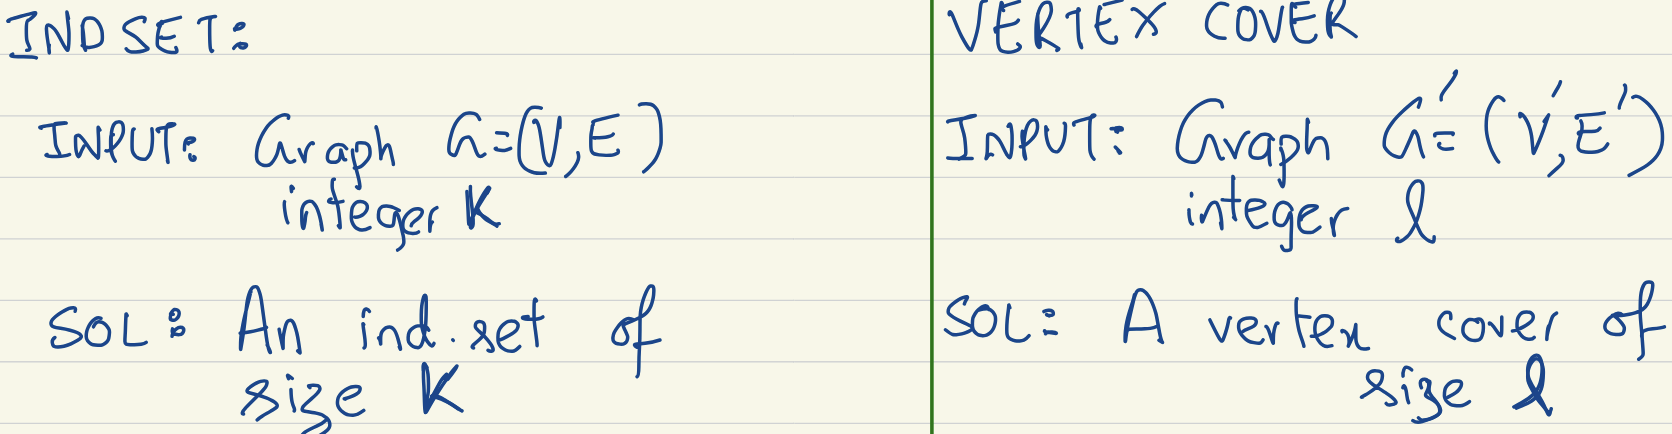 IND SET:
INPUT: Graph G=(V,E)
integer K
SOL: An ind. set of
size K
VERTEX COVER
INPUT: Graph G'=(V',E')
integer l
SOL: A vertex cover of
size l